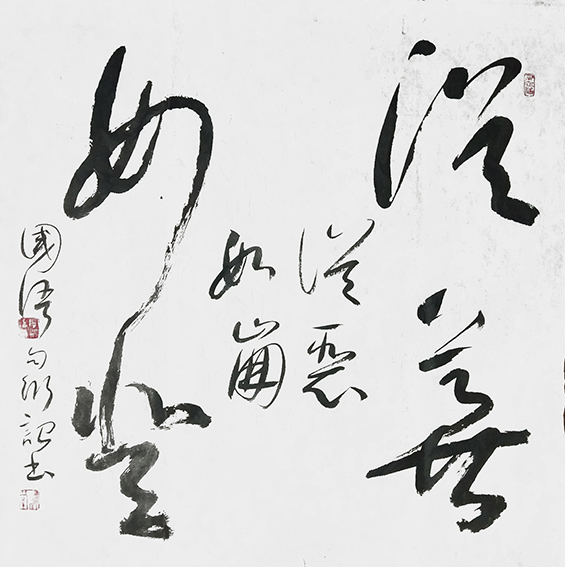 從善
如登
從惡
如崩
國語句書